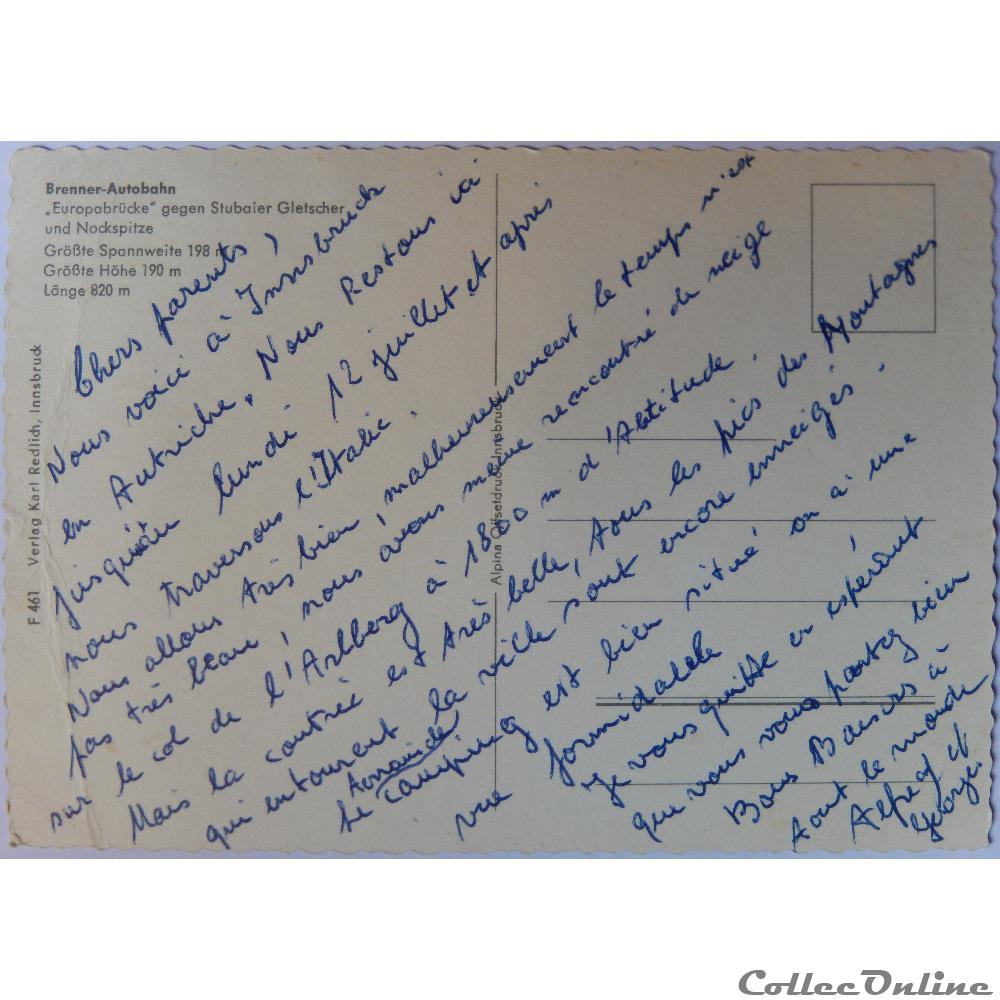 Brenner-Autobahn
„Europabrücke“ gegen Stubaier Gletscher
und Nockspitze
Größte Spannweite 198 m
Größte Höhe 190 m
Länge 820 m
F 461 Verlag Karl Redlich, Innsbruck
Alpina Offsetdruck Innsbruck
Chers parents,
Nous voici à Innsbruck
en Autriche. Nous Restons ici
jusqu'au lundi 12 juillet et après
nous traversons l'Italie.
Nous allons très bien, malheureusement le temps n'est
pas très beau, nous avons même rencontré de neige
sur le col de l'Arlberg à 1800 m d'Altitude.
Mais la contrée est très belle, tous les pics des Montagnes
qui entourent la ville sont encore enneigés.
Le camping est bien situé on a une
vue formidable
Je vous quitte en espérant
que vous vous portez bien
Bons Baisers à
tout le monde
Alfred et
George.
CollecOnline